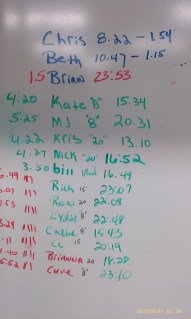 Chris 8.22 - 1.54
Beth 10.47 - 1.15
1.5 Brian 23:53
4.20 Kate 8" 15.34
5.25 MJ 8" 20.31
4.22 Kris 20" 13.10
4.27 Nick 20" 16:52
3.50 bill 16.49
6.49 Rich 15 23:07
.01 Ron 20 22:08
.53 Lydia 8" 22:48
3.29 Caitlin 8" 15:43
20:19
Brianna 20 18:28
5.52 8" 23:10